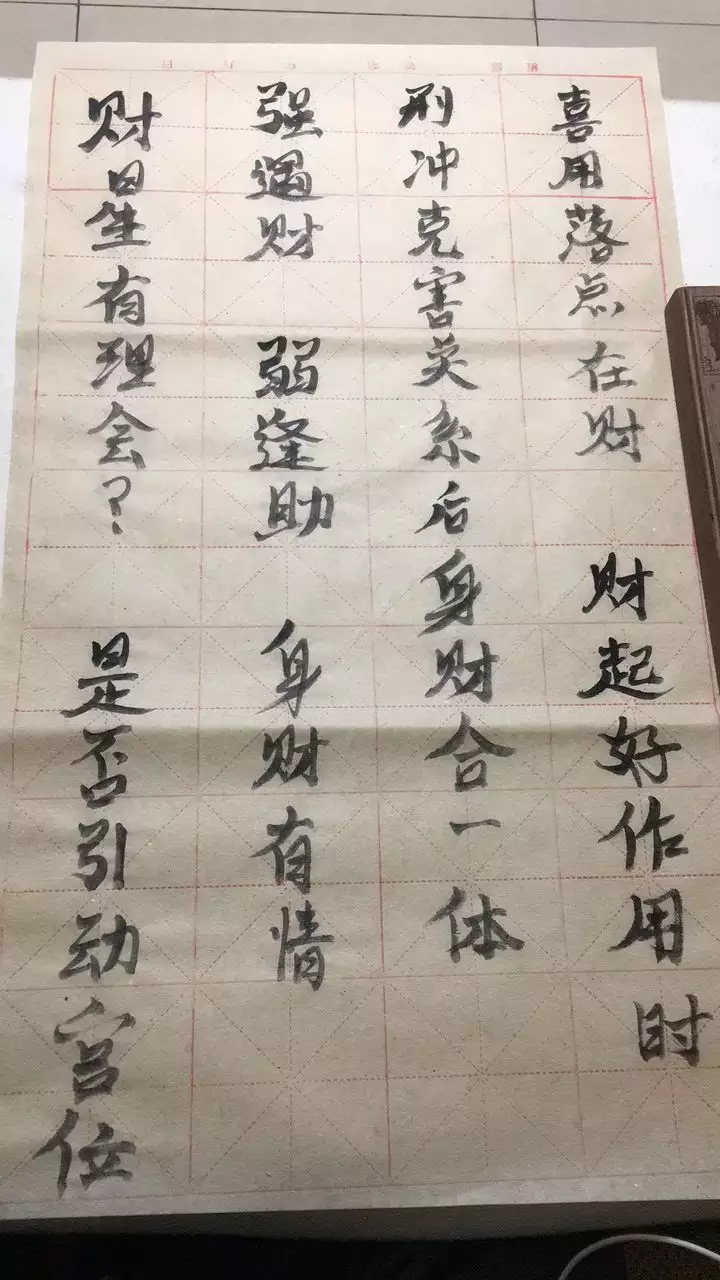 喜用落点在财 财起好作用时
刑冲克害关系后身财合一体
强遇财 弱逢助 身财有情
财星有理会? 是否引动宫位